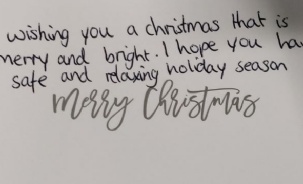 wishing you a christmas that is
merry and bright. I hope you ha
safe and relaxing holiday season
Merry Christmas